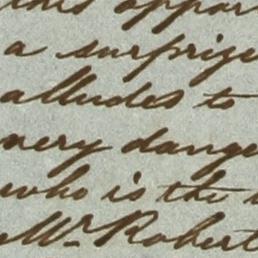 this oppor
a surprize
alludes to
very dange
who is the
Mr. Robert